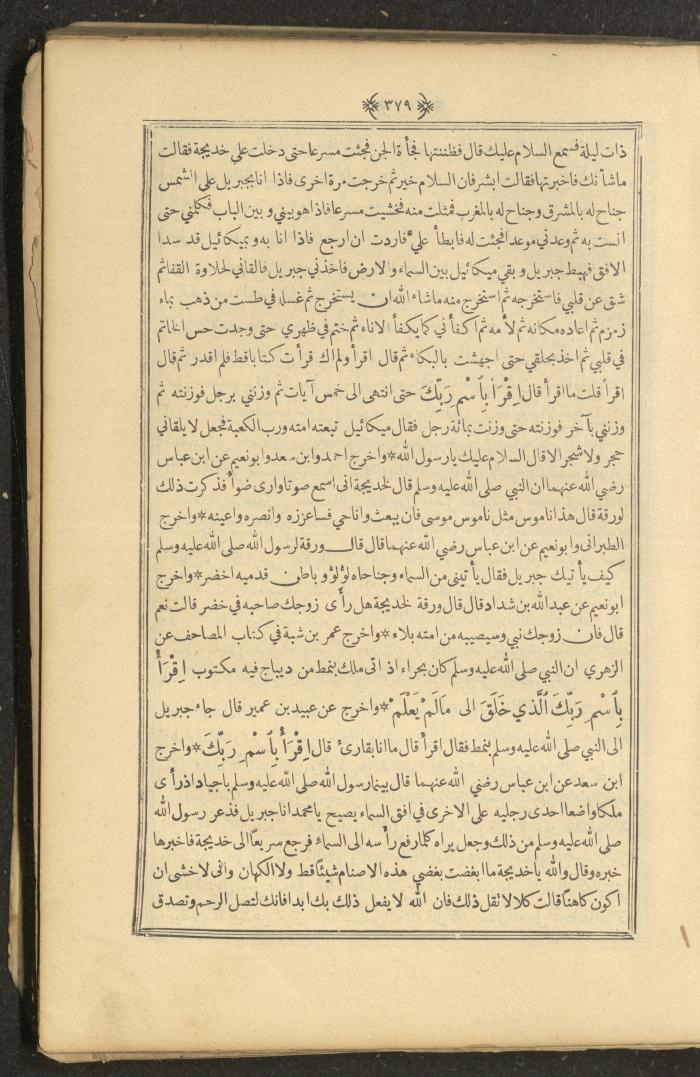 ٣٧٩
ذات ليلة فسمع السلام عليك قال فظننتها فجأة الجن فجئت مسرعا حتى دخلت على خديجة فقالت
ماشأنك فاخبرتها فقالت ابشر فان السلام خير ثم خرجت مرة اخرى فاذا انا بجبريل على الشمس
جناح له بالمشرق وجناح له بالمغرب فهلت منه فخشيت مسرعا فاذا هو بيني وبين الباب فكلمني حتى
انست به ثم وعدني موعدا فجئت له فابطأ عليَّ فاردت ان ارجع فاذا انا به وبميكائيل قد سدا
الافق فهبط جبريل وبقي ميكائيل بين السماء والارض فاخذني جبريل فالقاني لحلاوة القفا ثم
شق عن قلبي فاستخرجه ثم استخرج منه ماشاء الله ان يستخرج ثم غسله في طست من ذهب بماء
زمزم ثم اعاده مكانه ثم لأمه ثم اكفأني كما يكفأ الاناء ثم ختم في ظهري حتى وجدت حس الخاتم
في قلبي ثم اخذ بحلقي حتى اجهشت بالبكاء ثم قال اقرأ ولم اك قرأت كتابا قط فلم اقدر ثم قال
اقرأ قلت ما اقرأ قال اِقْرَأْ بِاٌسْمِ رَبِّكَ حتى انتهى الى خمس آيات ثم وزنني برجل فوزنته ثم
وزنني بآخر فوزنته حتى وزنت بمائة رجل فقال ميكائيل تبعته امته ورب الكعبة فجعل لا يلقاني
حجر ولا شجر الا قال السلام عليك يارسول الله*واخرج احمد وابن سعد وابو نعيم عن ابن عباس
رضي الله عنهما ان النبي صلى الله عليه وسلم قال لخديجة انى اسمع صوتا وارى ضوأ فذكرت ذلك
لورقة قال هذا ناموس مثل ناموس موسى فان يبعث وانا حي فساعززه وانصره واعينه*واخرج
الطبرانى وابو نعيم عن ابن عباس رضي الله عنهما قال قال ورقة لرسول الله صلى الله عليه وسلم
كيف يأتيك جبريل فقال يأتينى من السماء وجناحاه لؤلؤ وباطن قدميه اخضر*واخرج
ابو نعيم عن عبد الله بن شداد قال قال ورقة لخديجة هل رأى زوجك صاحبه في خضر قالت نعم
قال فان زوجك نبي وسيصيبه من امته بلاء*واخرج عمر بن شبة في كتاب المصاحف عن
الزهري ان النبي صلى الله عليه وسلم كان بحراء اذ اتى ملك بنمط من ديباج فيه مكتوب اِقْرَأْ
بِاٌسْمِ رَبِّكَ اٌلَّذِي خَلَقَ الى مَالَمْ يَعْلَمْ*واخرج عن عبيد بن عمير قال جاء جبريل
الى النبي صلى الله عليه وسلم بنمط فقال اقرأ قال ما انا بقارئ قال اِقْرَأْ بِاٌسْمِ رَبِّكَ*واخرج
ابن سعد عن ابن عباس رضي الله عنهما قال بينما رسول الله صلى الله عليه وسلم باجياد اذ رأى
ملكا واضعا احدى رجليه على الاخرى في افق السماء يصيح يا محمد انا جبريل فذعر رسول الله
صلى الله عليه وسلم من ذلك وجعل يراه كلما رفع رأسه الى السماء فرجع سريعًا الى خديجة فاخبرها
خبره وقال والله ياخديجة ما ابغضت بغضي هذه الاصنام شيئًا قط ولا الكهان وانى لاخشى ان
اكون كاهنًا قالت كلا لا تقل ذلك فان الله لا يفعل ذلك بك ابدا فانك لتصل الرحم وتصدق